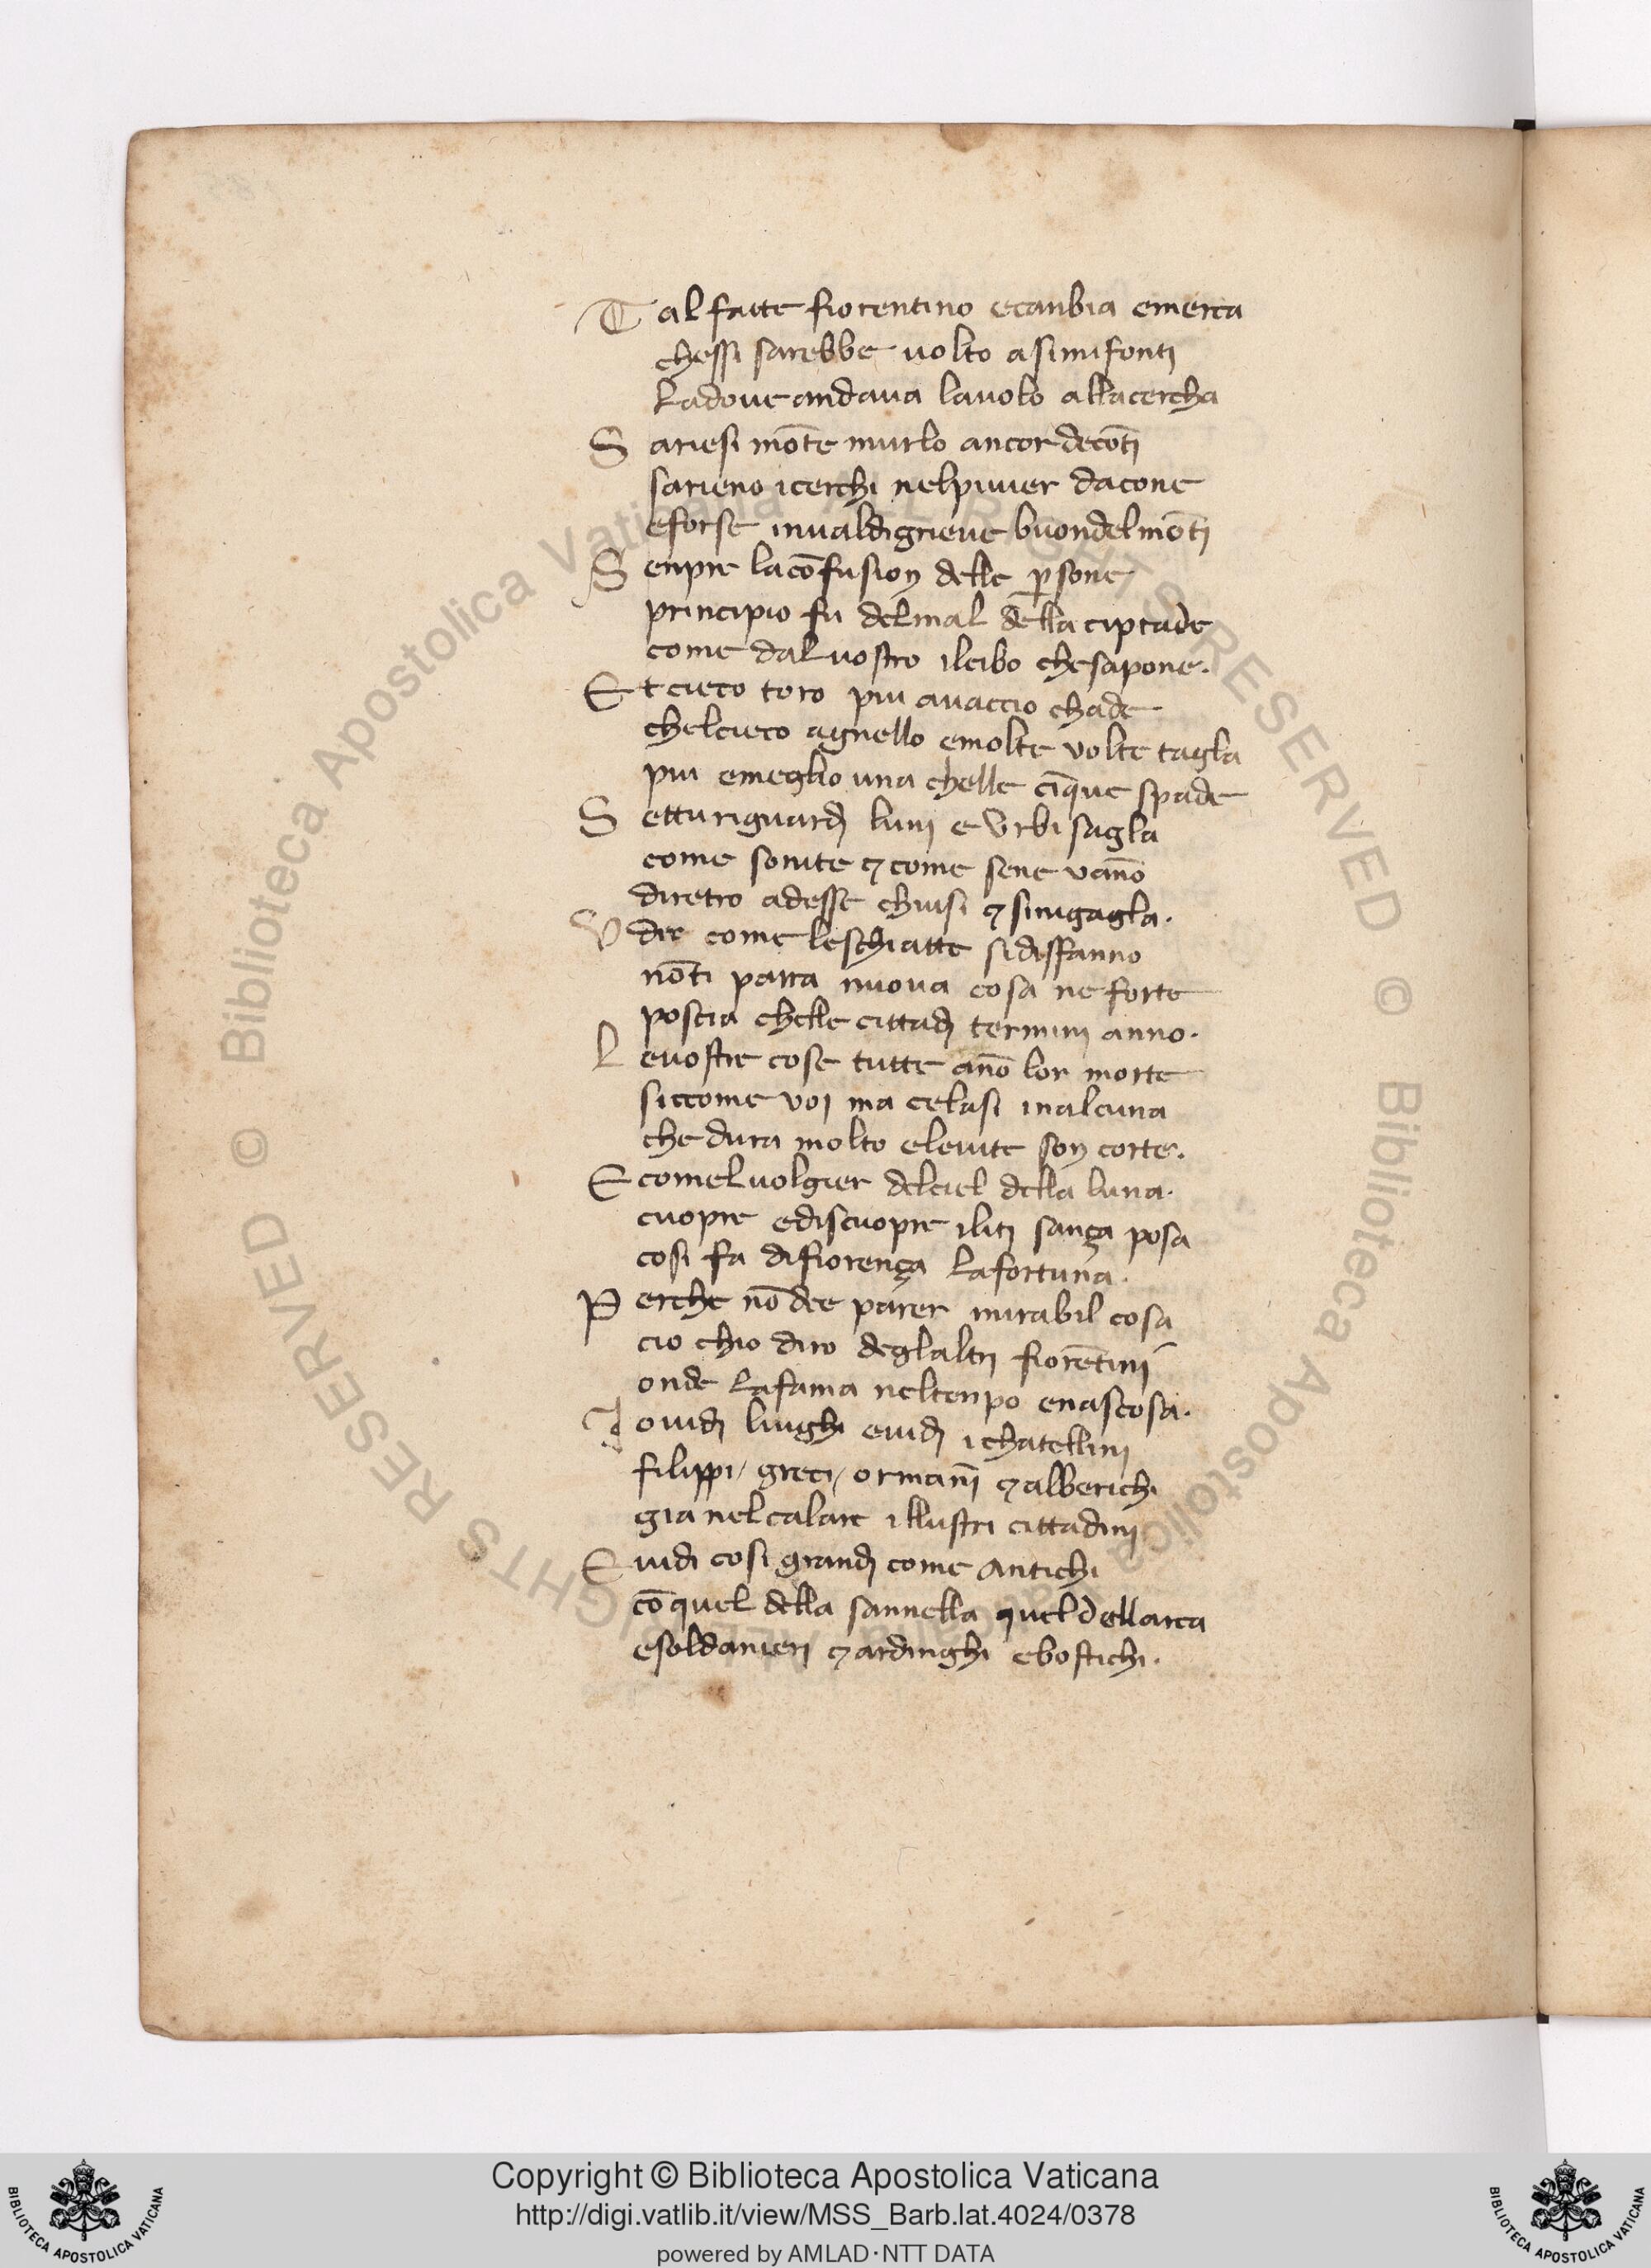 Tal fatte fiorentino ecanbia emerca
chessi sarebbe uolto asimifonti
Ladoue andaua lauolo allacercha
Sariesi mōte murlo ancor decōti
sarieno icerchi nelpiuier dacone
eforse inualdigrieue buondelmōti
Senpre lacōfusion delle ꝑsone
principio fu delmal della ciptade
come dal uostro ilcibo chesapone.
Et cieco toro piu auaccio chade
chelcieco agnello emolte volte tagla
piu emeglio una chelle cīque spade
Settu riguardj lunj e Vrbisagla
come sonite ⁊ come sene vānō
diretro adesse chiusi ⁊ sinigagla.
Vdir come leschiatte sidisfanno
nōti parra nuoua cosa ne forte
poscia chelle cittadj terminj anno.
Leuostre cose tutte ānō lor morte
siccome voi ma celasi inalcuna
che dura molto eleuite son corte.
Ecomel uolgier delciel della luna.
cuopre ediscuopre iliti sança posa
cosi fa difiorença Lafortuna.
Perche nō dee parer mirabil cosa
cio chio diro deglaltri fiorētini
onde Lafama neltenpo enascosa.
Iouidj liughi euidj ichatellinj
filippi/ greci/ ormānī ⁊ alberichi
gia nelcalare illustri cittadinj
Euidi cosi grandj come antichi
cō quel della sannella quel dellarca
esoldanieri ⁊ ardinghi ebostichi.
Copyright © Biblioteca Apostolica Vaticana
http://digi.vatlib.it/view/MSS_Barb.lat.4024/0378
powered by AMLAD·NTT DATA